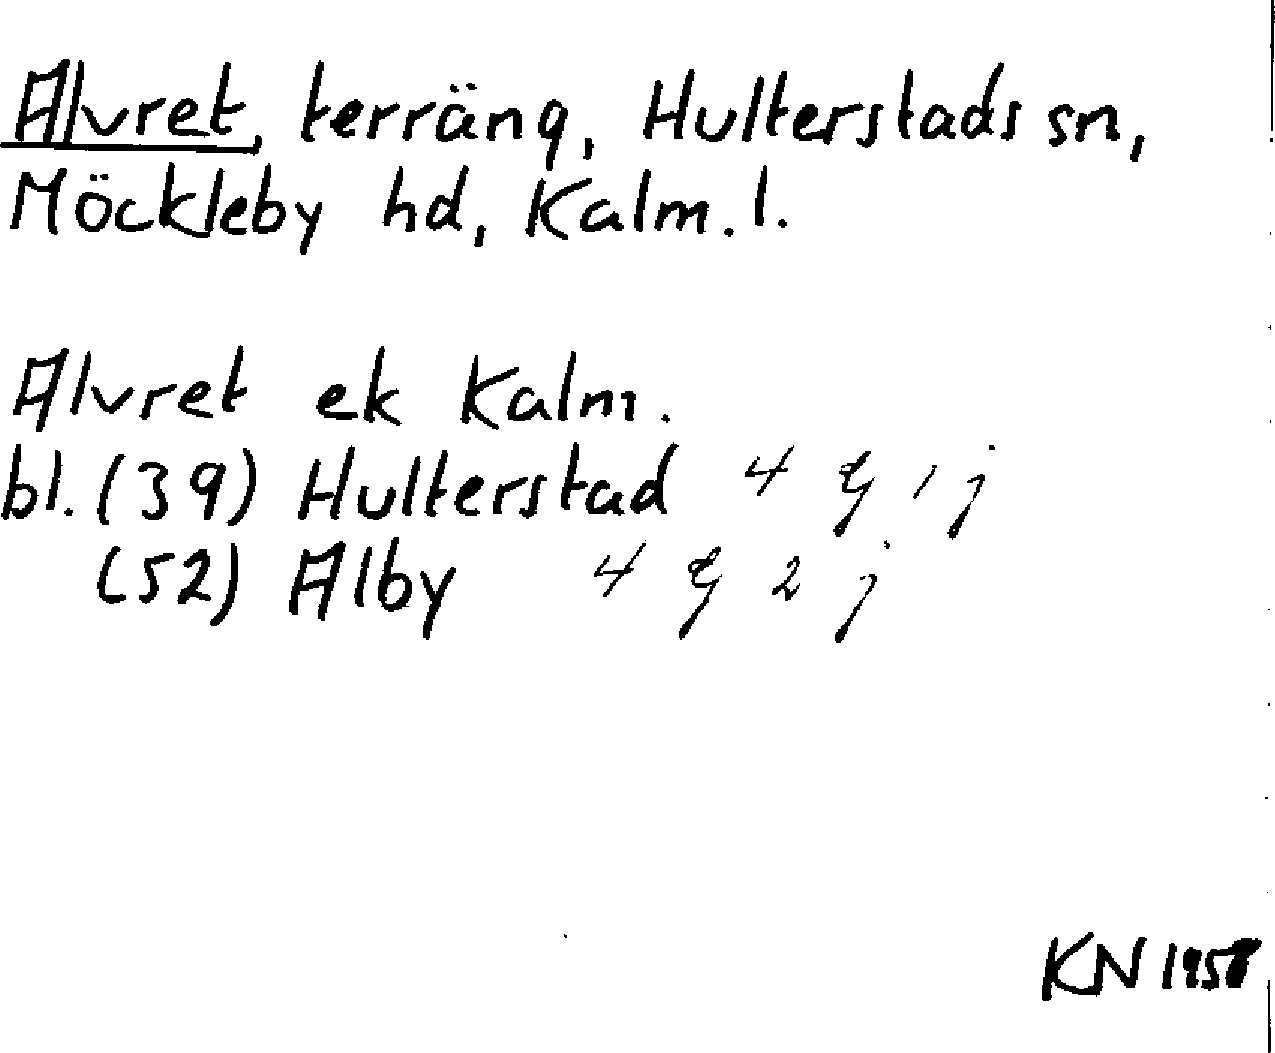 Alvret, terräng, Hulterstads sn,
Möckleby hd, Kalm. l.
Alvret ek Kalm.
bl. (39) Hulterstad 4 G 1 j
(52) Alby 4 G 2 j
KN 1958